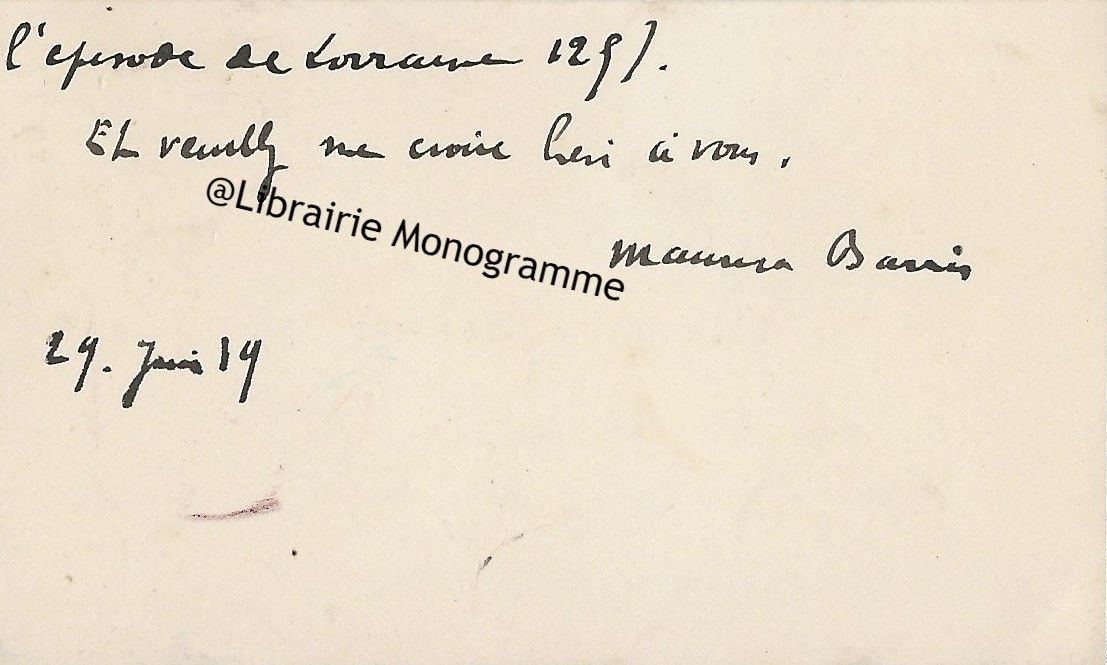 l'episode de Lorraine 1297.
Et veuillez me croire bien à vous.
@Librairie Monogramme
Maurice Barrès
29. Juin 19